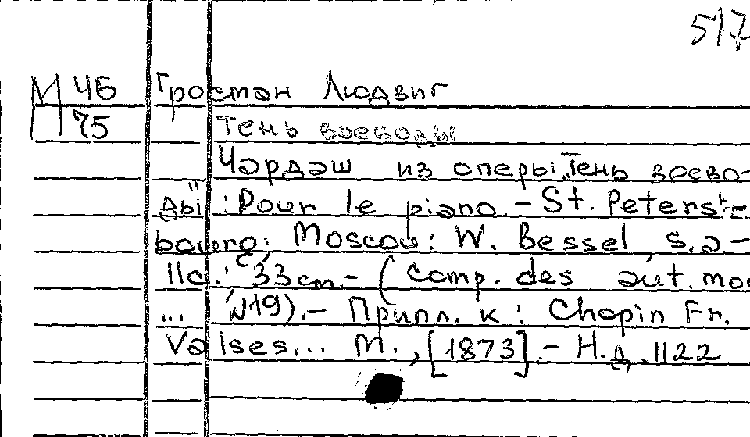 517
М 46 Гросман Людвиг
П 75 Тень воеводы
Чардаш из оперы „Тень воево-
ды": Pour le piano. - St. Peters-
bourg; Moscou: W. Bessel, s.a. -
11с.; 33cm. - (Comp. des aut. mod
... №19). - Припл. к: Chopin Fr.
Valses... М., [1873]. - Н.д. 1122